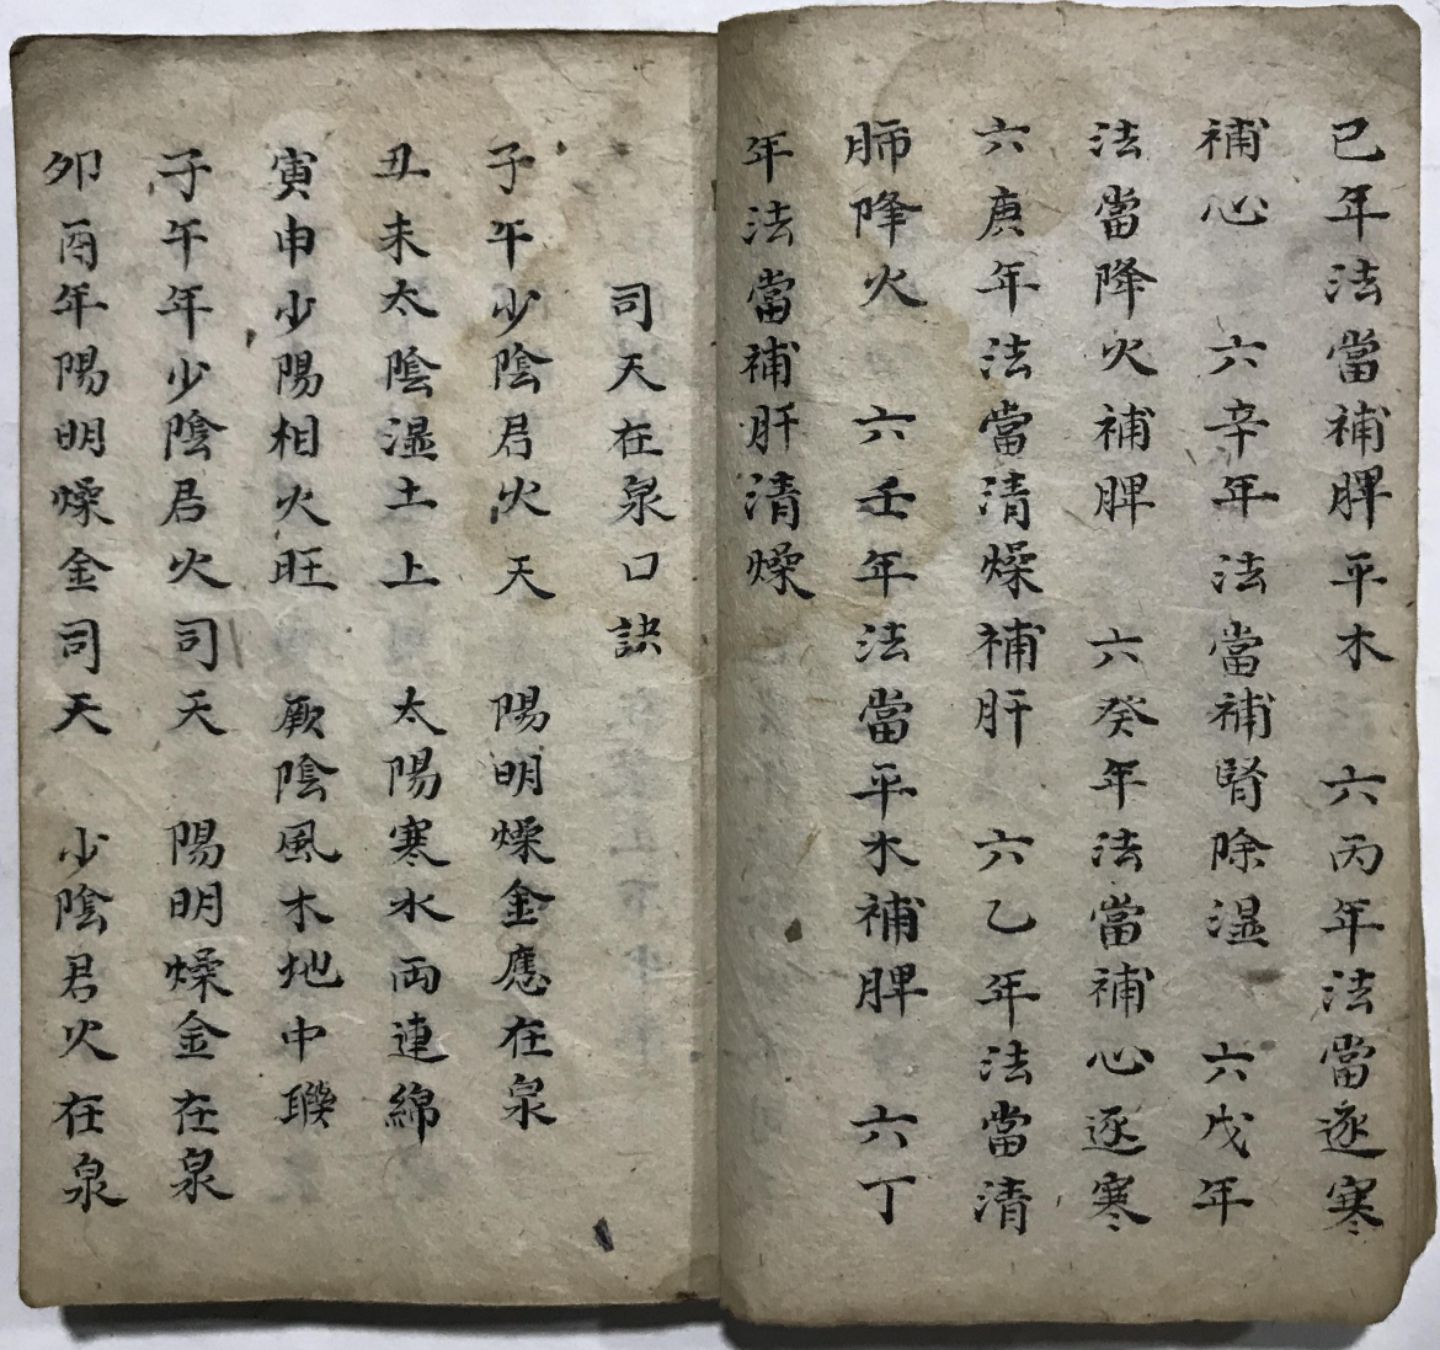 已年法當補脾平木 六丙年法當逐寒
補心 六辛年法當補腎除濕 六戊年
法當降火補脾 六癸年法當補心逐寒
六庚年法當清燥補肝 六乙年法當清
肺降火 六壬年法當平木補脾 六丁
年法當補肝清燥
司天在泉口訣
子午少陰君火天 陽明燥金應在泉
丑未太陰濕土上 太陽寒水両連綿
寅申少陽相火旺 厥陰風木地中聯
子午年少陰君火司天 陽明燥金在泉
夘酉年陽明燥金司天 少陰君火在泉